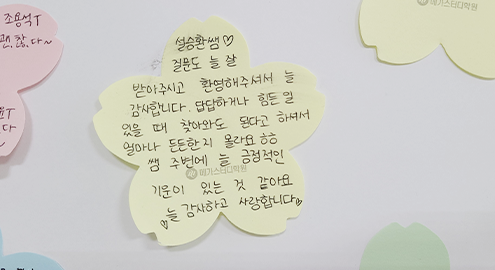 조용석T
괜,찮,다~
설승환쌤♡
질문도 늘 잘
받아주시고 환영해주셔서 늘
감사합니다. 답답하거나 힘든 일
있을 때 찾아와도 된다고 하셔서
얼마나 든든한지 몰라요ㅎㅎ
쌤 주변에 늘 긍정적인
메가스터디학원
기운이 있는 것 같아요
늘 감사하고 사랑합니다♡
메가스터디학원